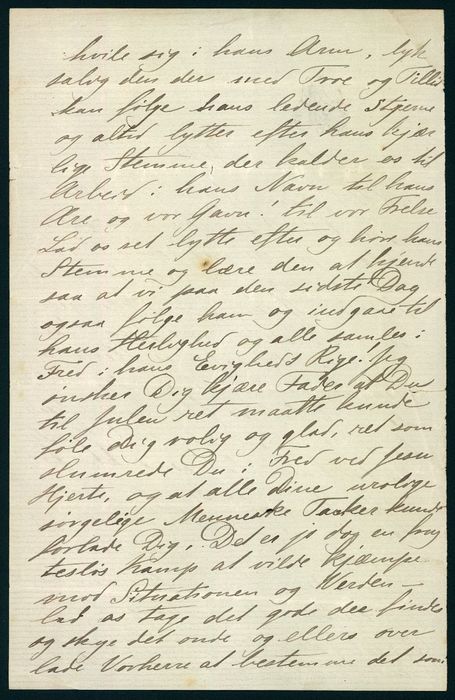 hvile sig i hans Arm, lyk
salig den der med Troe og Tillid
kan følge hans ledende Stjerne
og altid lytter efter hans kjær
lige Stemme, der kalder os til
Arbeid i hans Navn til hans
Ære og vor Gavn! til vor Frelse
Lad os ret lytte efter og høre hans
Stemme og lære den at kjende
saa at vi paa den sidste Dag
ogsaa følge ham og indgaae til
hans Herlighed og alle samles i
Fred i hans Evigheds Rige! Jeg
ønsker Dig kjære Fader at Du
til Julen ret maatte kunde
føle Dig rolig og glad, ret som
slumrede Du i Fred ved Jesu
Hjerte, og at alle Dine urolige
sørgelige Menneske Tanker kunde
forlade Dig. Det er jo dog en frug
tesløs Kamp at vilde kjæmpe
mod Situationen og Verden –
lad os tage det gode der findes
og skye det onde og ellers over
lade Vorherre at bestemme det som